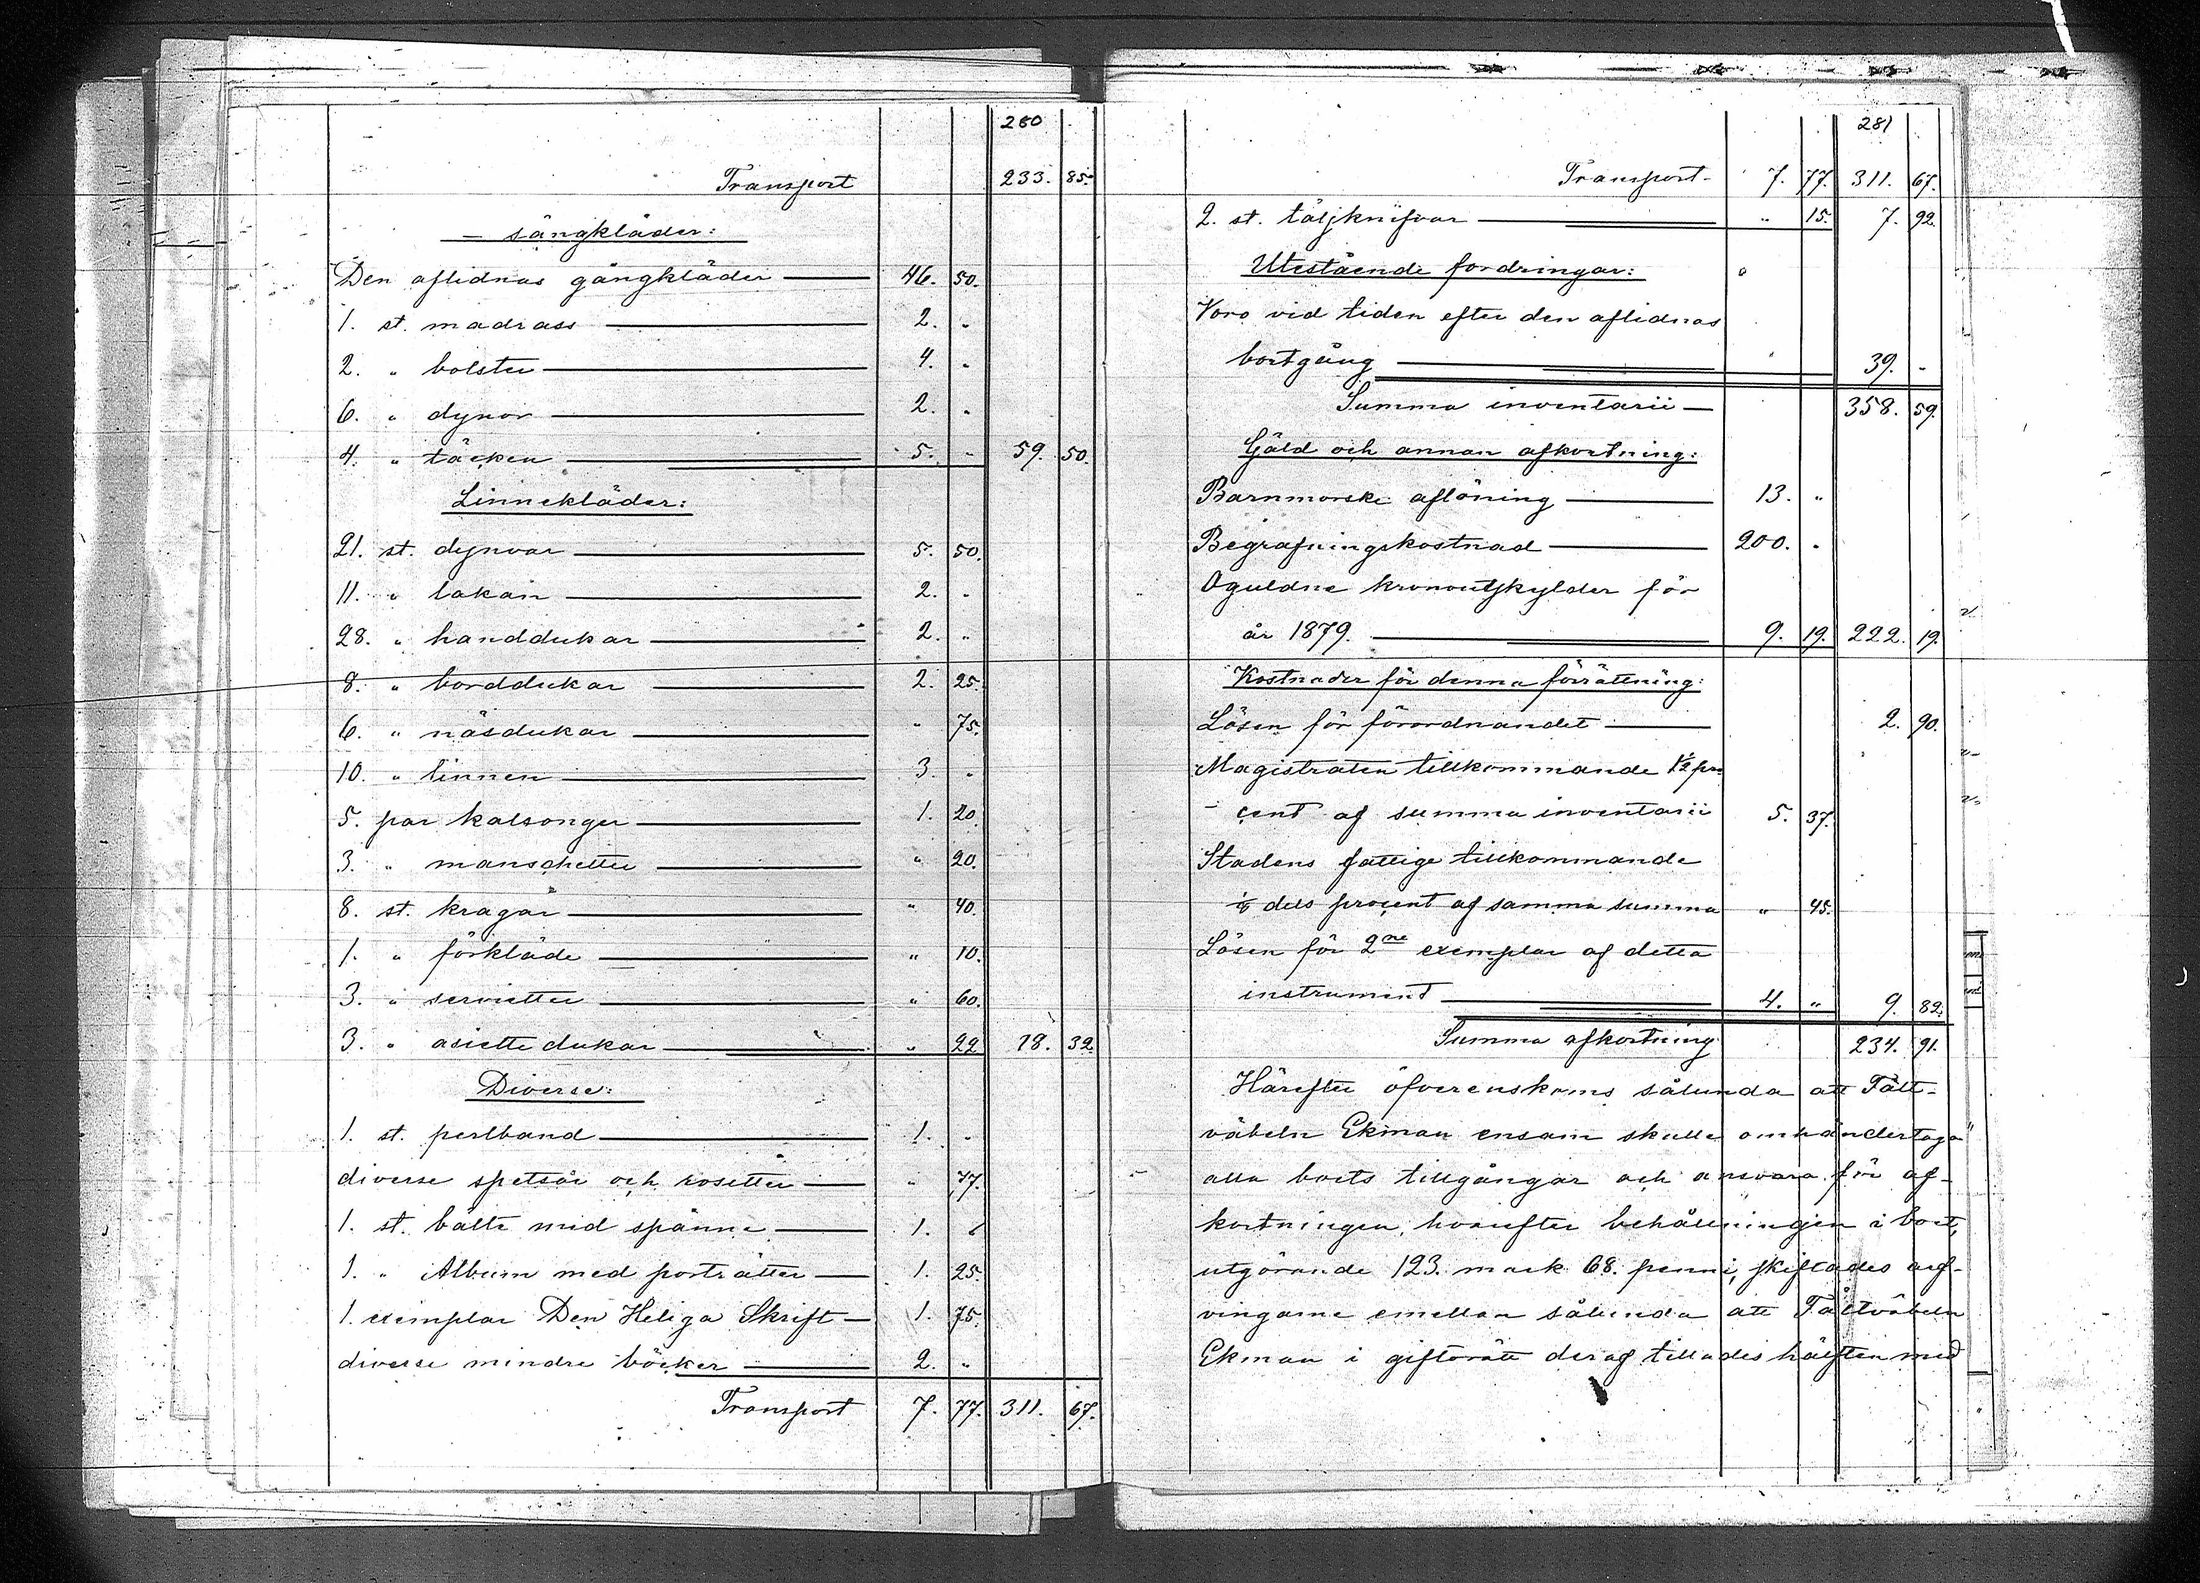 280
Transport 233. 85.
- sängkläder:
Den aflidnas gångkläder 46. 50.
1. st. madrass 2. "
2. " bolster 4. "
6. " dynor 2. "
4. " täcken 5. " 59. 50.
Linnekläder:
21. st. dynvar 5. 50.
11. " lakan 2. "
28. " handdukar 2. "
8. " borddukar 2. 25.
6. " näsdukar " 75.
10. " linnen 3. "
5. par kalsonger 1. 20.
3. " manschetter " 20.
8. st. kragar " 40.
1. " förkläde " 10.
3. " servietter " 60.
3. " asiette dukar " 22 18. 32.
Diverse:
1. st. perlband 1. "
diverse spetsar och rosetter " 77.
1. st. bälte med spänne 1. "
1. " Album med porträtter 1. 25.
1. exemplar Den Heliga Skrift 1. 75.
diverse mindre böcker 2. "
Transport 7. 77. 311. 67.
281
Transport 7. 77. 311. 67.
2. st. täljknifvar " 15. 7. 92.
Utestående fordringar:
Voro vid tiden efter den aflidnas
bortgång 39. "
Summa inventarii 358. 59.
Gäld och annan afkortning:
Barnmorske aflöning 13. "
Begrafningskostnad 200. "
Oguldne kronoutskylder för
år 1879. 9. 19. 222. 19.
Kostnader för denna förrättning:
Lösen för förordnandet 2. 90.
Magistraten tillkommande 1½ pro
- cent af summa inventarii 5. 37.
Stadens fattige tillkommande
1/8 dels procent af samma summa " 45.
Lösen för 2ne exemplar af detta
instrument 4. " 9. 82.
Summa afkortning 234. 91.
Härefter öfverenskoms sålunda att Fält-
väbeln Ekman ensam skulle omhändertaga
alla boets tillgångar och ansvara för af-
kortningen, hvarefter behållningen i boet,
utgörande 123. mark 68. penni, skiftades arf-
vingarne emellan sålunda att Fältväbeln
Ekman i giftorätt deraf tillades hälften med